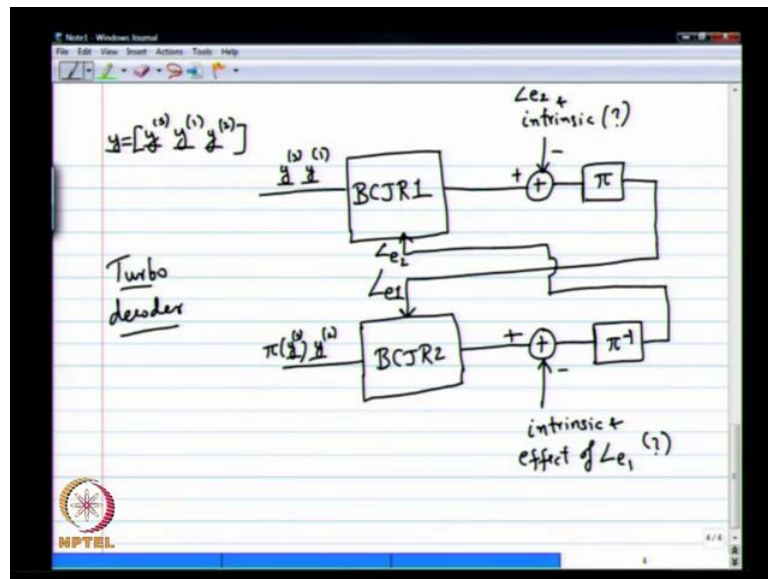 Note1 - Windows Journal
File Edit View Insert Actions Tools Help
y=[y^(s) y^(1) y^(2)]
Le2 +
intrinsic (?)
-
y^(s) y^(1)
BCJR1
+
+
π
Le2
Turbo
decoder
Le1
π(y^(s)) y^(2)
BCJR2
+
+
π^-1
-
intrinsic +
effect of Le1 (?)
NPTEL
4/4
4